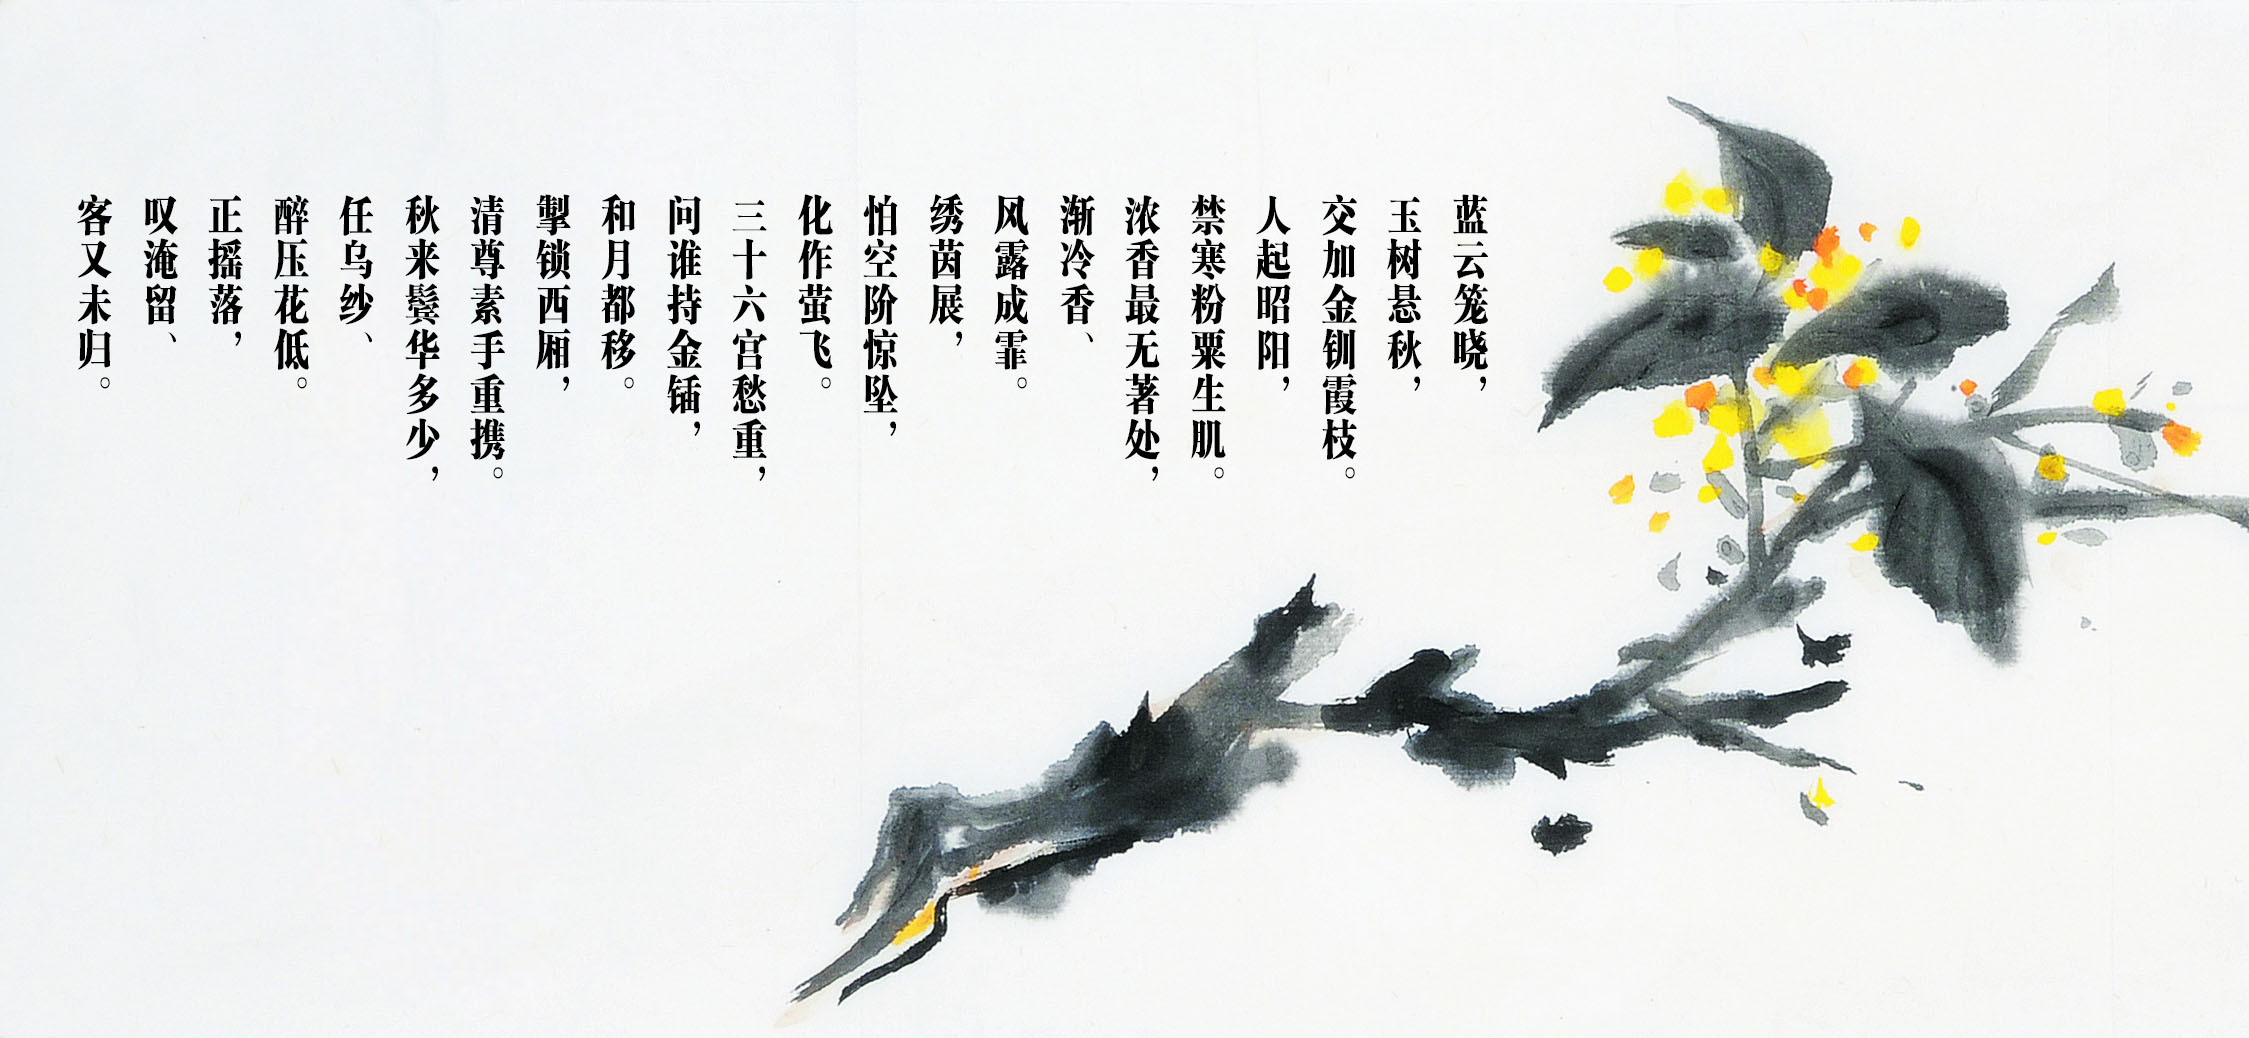 蓝云笼晓，
玉树悬秋，
交加金钏霞枝。
人起昭阳，
禁寒粉粟生肌。
浓香最无著处，
渐冷香、
风露成霏。
绣茵展，
怕空阶惊坠，
化作萤飞。
三十六宫愁重，
问谁持金锸，
和月都移。
掣锁西厢，
清尊素手重携。
秋来鬓华多少，
任乌纱、
醉压花低。
正摇落，
叹淹留、
客又未归。